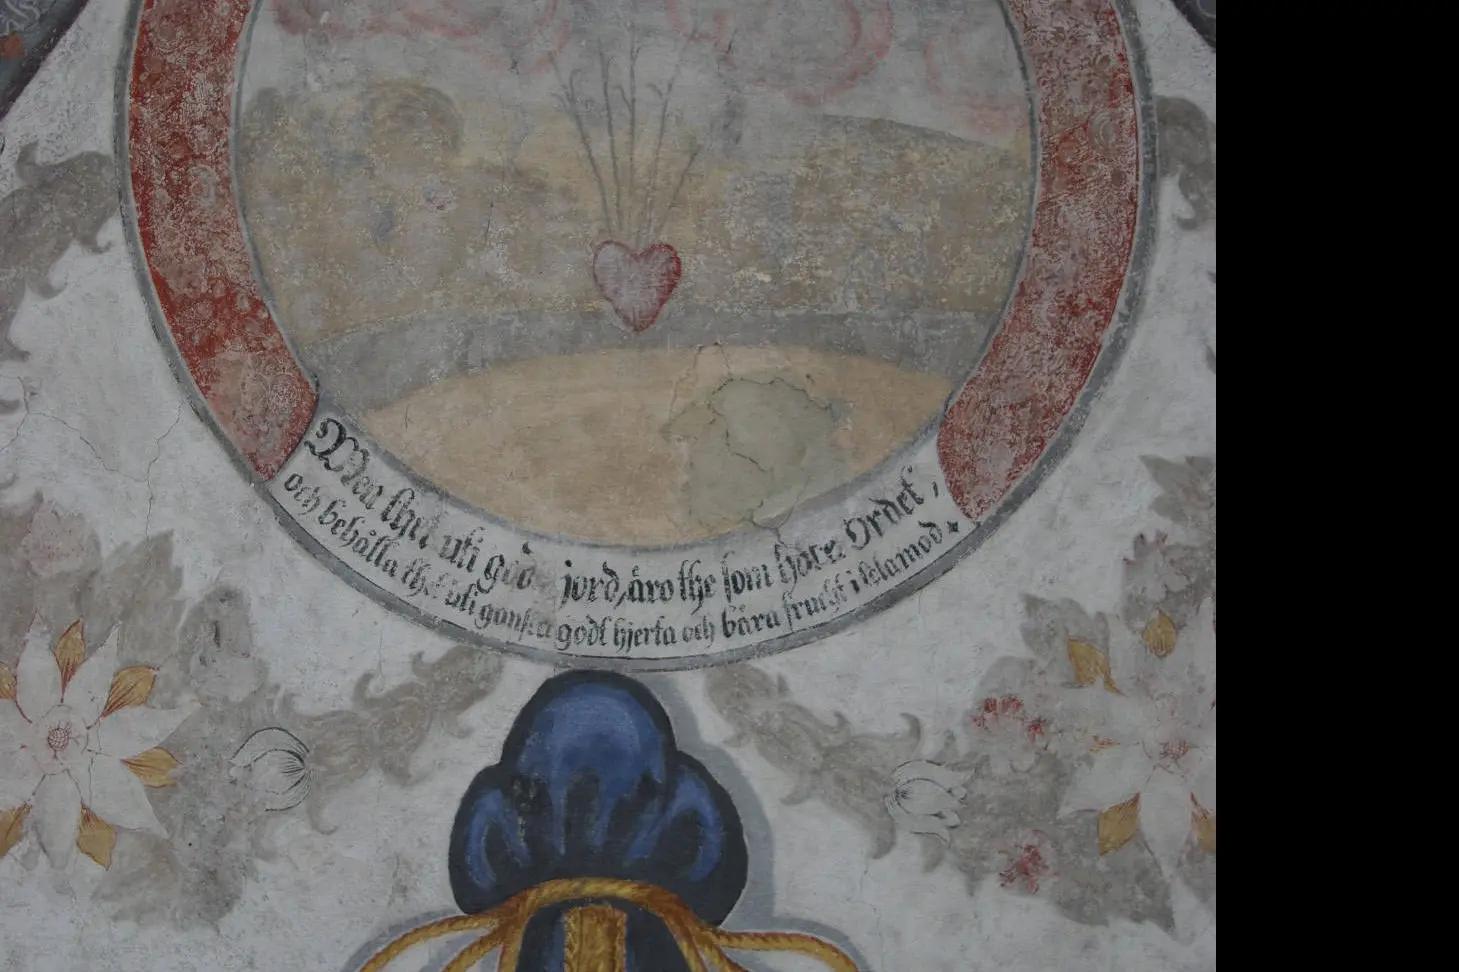 Men thet uti goda jord, äro the som höra Ordet,
och behålla thet uti ganska godt hjerta och bära frucht i tolamod.